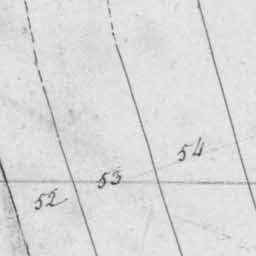 52 53 54